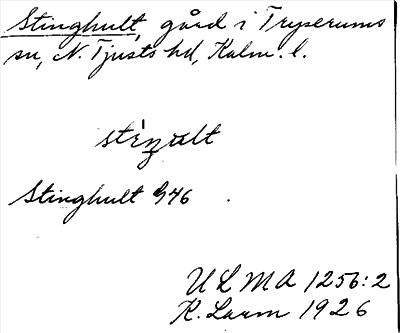 Stinghult, gård i Tryserums
sn, N. Tjusts hd, Kalm. l.
stèŋult
Stinghult G46
U L M A 1256:2
K. Larm 1926